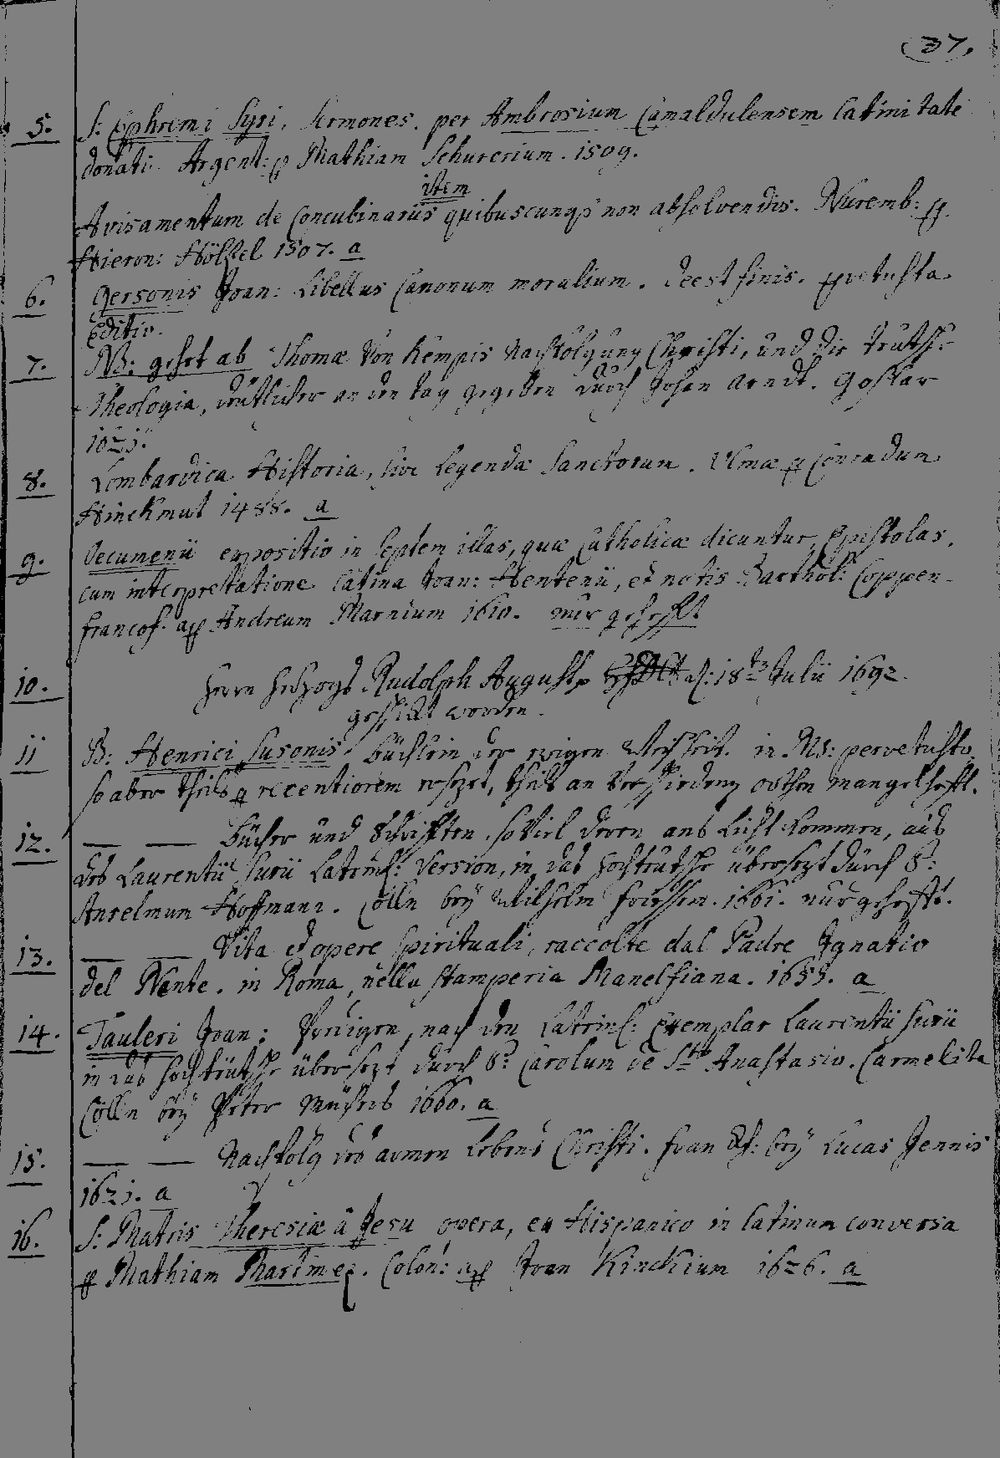 37.
5. S: Ephremi Syri, Sermones. per Ambrosium Camaldulensem Latinitate
donati. Argent: p Mathiam Schurerium. 1509.
item
Avisamentum de Concubinariis quibuscunq; non absolvendis. Nuremb: p
Hieron: Höltzel 1507. a
6. Gersonis Joan: Libellus Canonum moralium. deest finis. pvetusta
Editio.
7. NB: gehört ab Thomæ von Kempis Nachfolgung Christi, und die teutsche
Theologia, deutlicher an den tag gegeben durch Johan Arndt. Goslar
1621.
8. Lombardica Historia, sive Legendæ Sanctorum. Ulmæ p Conradum
Hinckmut 1488. a
9. Oecumenii expositio in septem illas, quæ Catholicæ dicuntur, Epistolas,
cum interpretatione Latina Joan: Hentenii, et notis Barthol: Coppen
francof. ap Andream Marnium 1610. nur gehefft
10. Herrn Herzogs Rudolph August d: 18 Julii 1692
geschickt worden.
11 B: Henrici Susonis büchlein der ewigen Weisheit. in MS: pervetusto,
so aber theils p recentiorem ersezet, theils an verschiedenen orthen mangelhafft.
12. — — Bücher und Schrifften, so viel deren ans Licht kommen, aus
des Laurentii Surii Lateinis: Version, in das hochteutsche übersezt durch F:
Anselmum Hoffmann. Cölln bey Wilhelm Friessem. 1661. nur gehefft.
13. — — Vita et opere spirituali, raccolte dal Padre Ignatio
del Nente. in Roma, nella stamperia Manelfiana. 1655. a
14. Tauleri Joan: Predigen, nach den Lateinis: Exemplar Laurentii Surii
in das hochteutsche übersezt durch F: Carolum de Sto Anastasio. Carmelita
Cölln bey Peter 1660. a
15. — — Nachfolg des armen Lebens Christi. bey Lucas Jennis
1621. a
16. S: Matris Theresiæ à Jesu opera, ex Hispanico in latinum conversa
p Mathiam Martinez. Colon: ap Joan Kinckium 1626. a